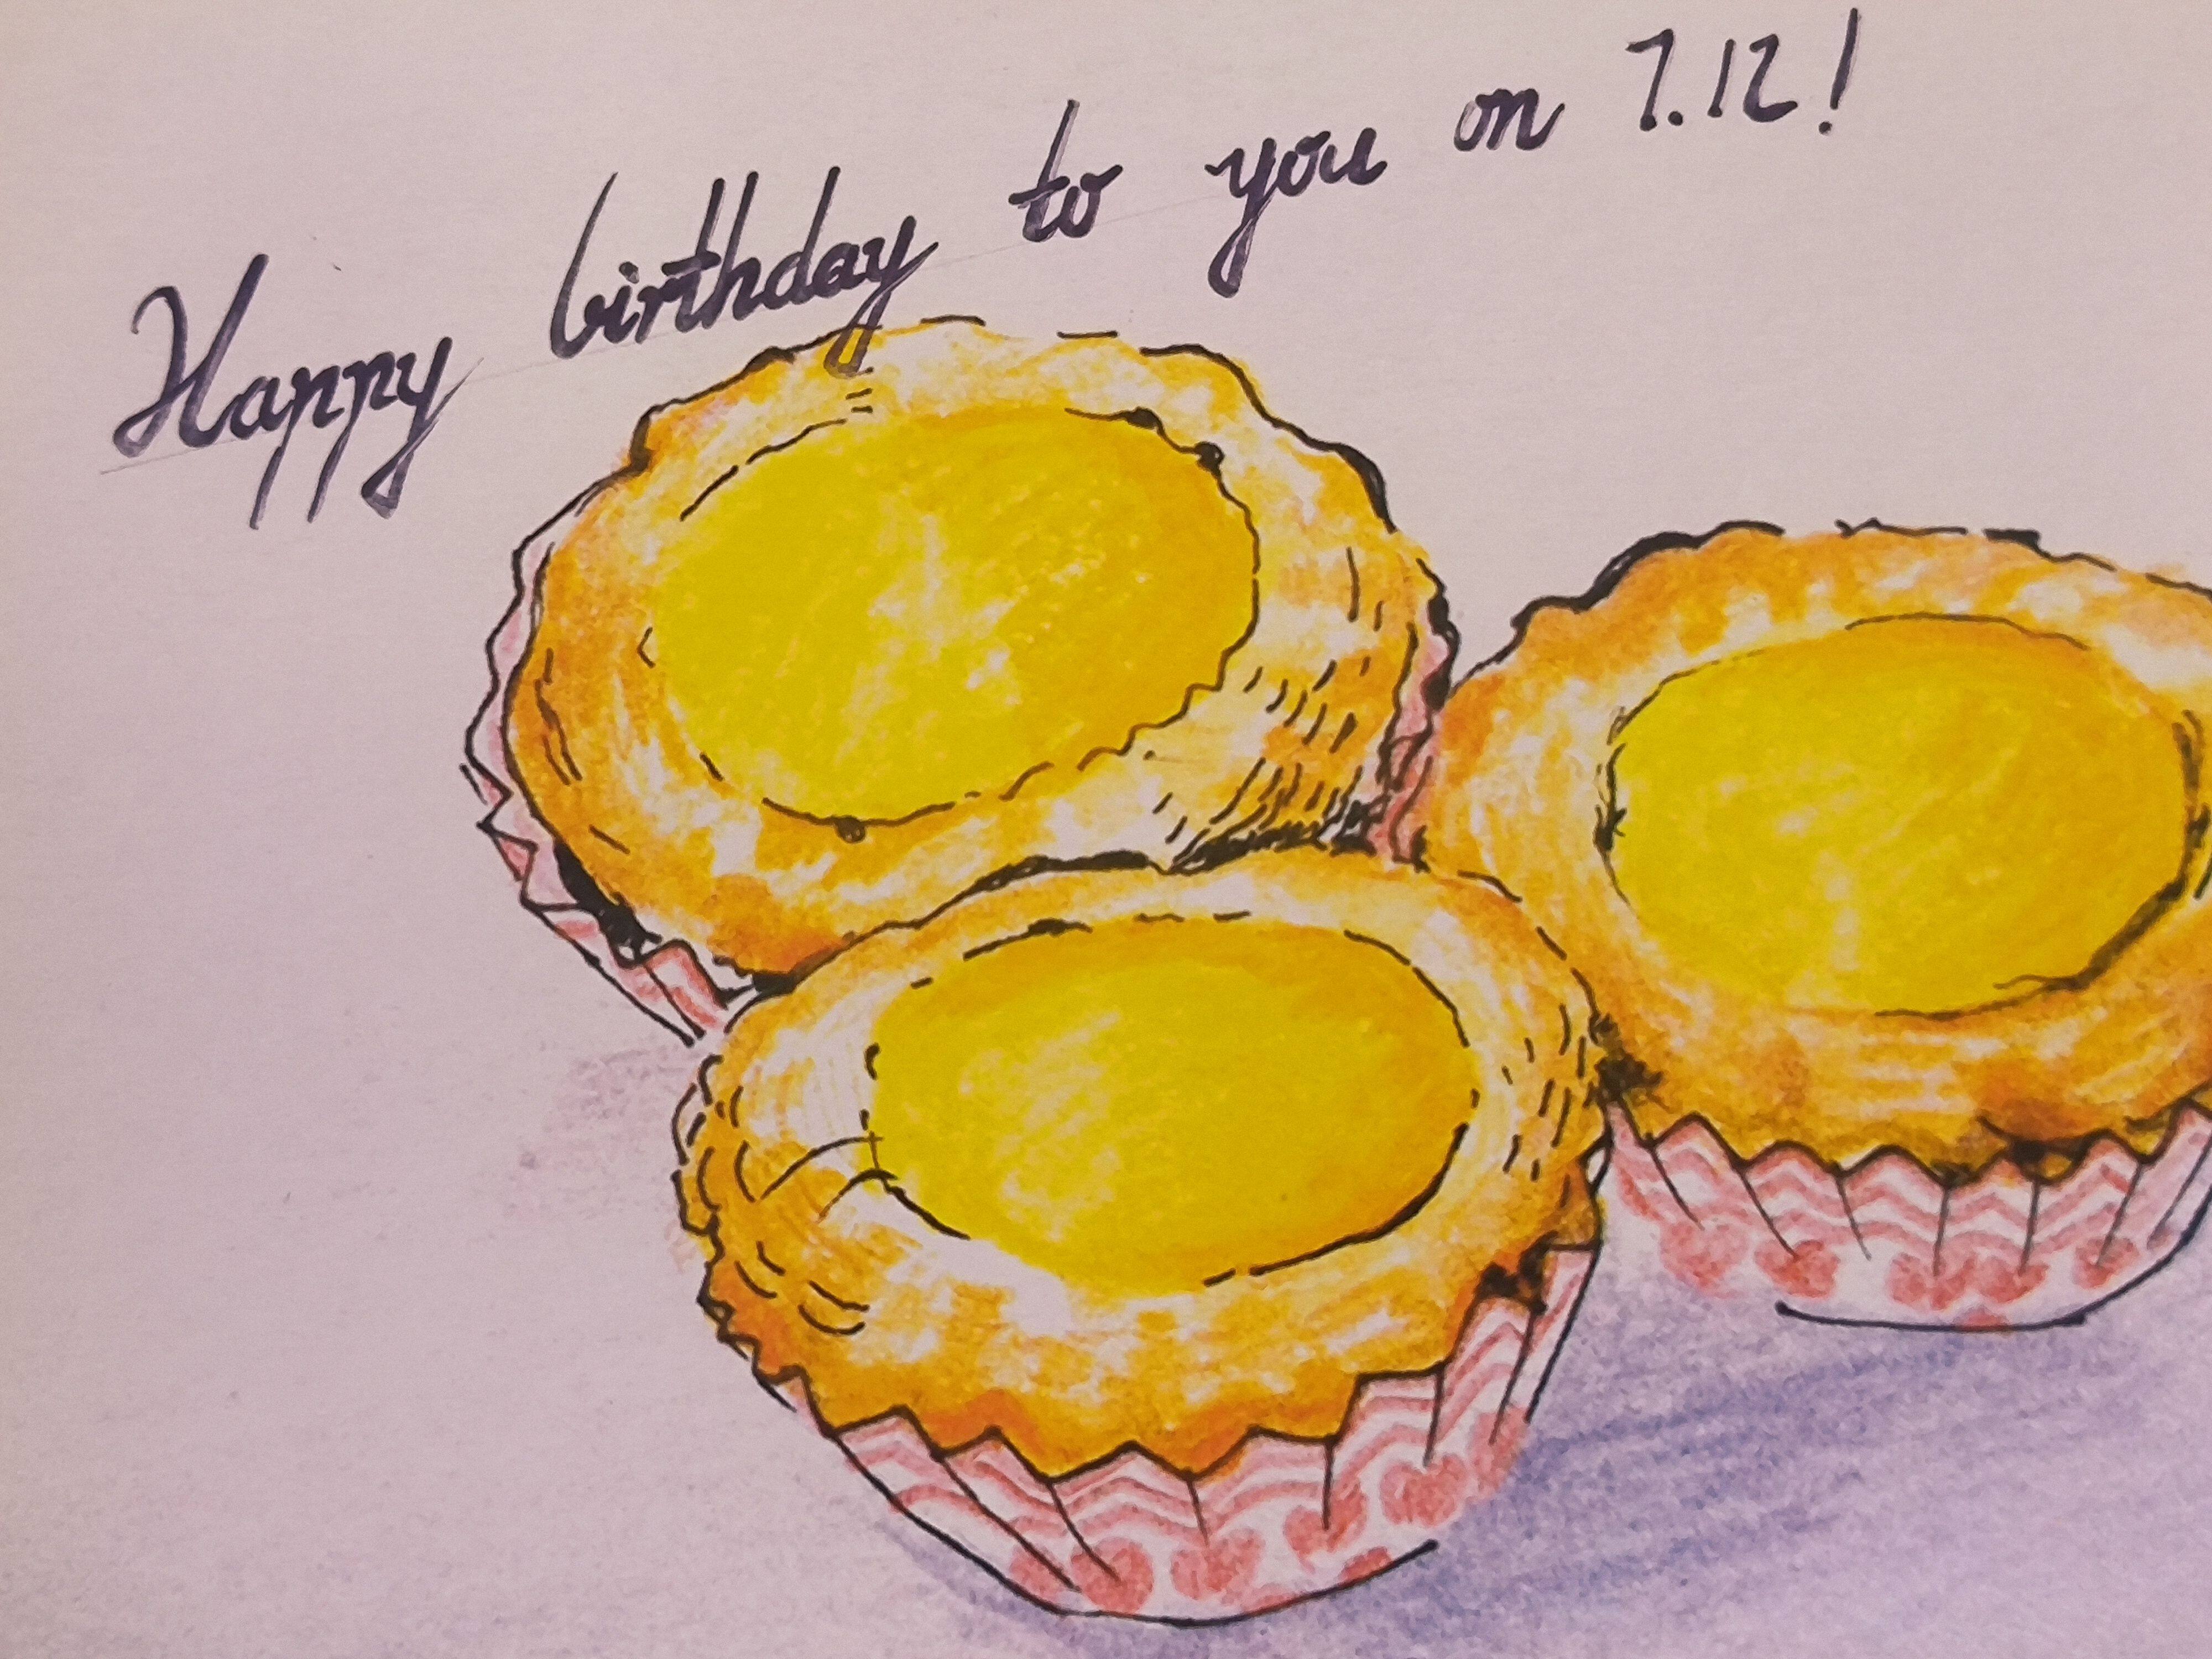 Happy birthday to you on 7.12!